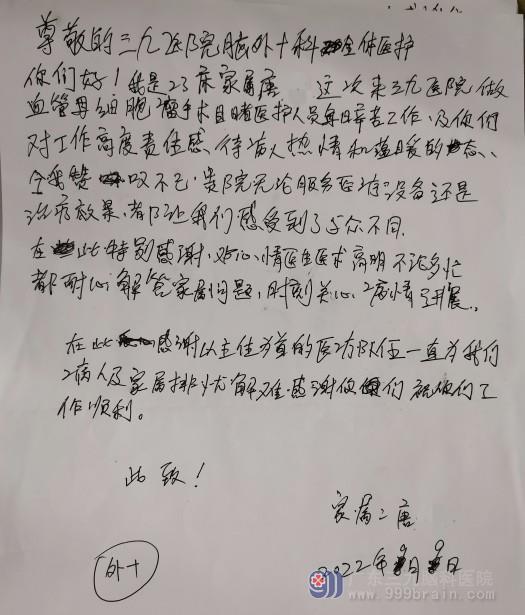 尊敬的三九医院脑外十科全体医护
你们好！我是23床家属唐 这次来三九医院做
血管母细胞瘤手术目睹医护人员每日辛苦工作，及你们
对工作高度责任感，待病人热情和蔼暖的态、
令我赞叹不已，贵院无论服务医治设备还是
治疗效果，都让我们感受到了与众不同。
在此特别感谢，邓心情医生医术高明不论多忙
都耐心解答家属问题，时刻关心病情进展。
在此感谢以主任为首的医功队伍一直为我们
病人及家属排忧解难感谢你们 祝你们工
作顺利。
此致！
家属：唐
2022年9月9日
外十
广东三九脑科医院
www.999brain.com